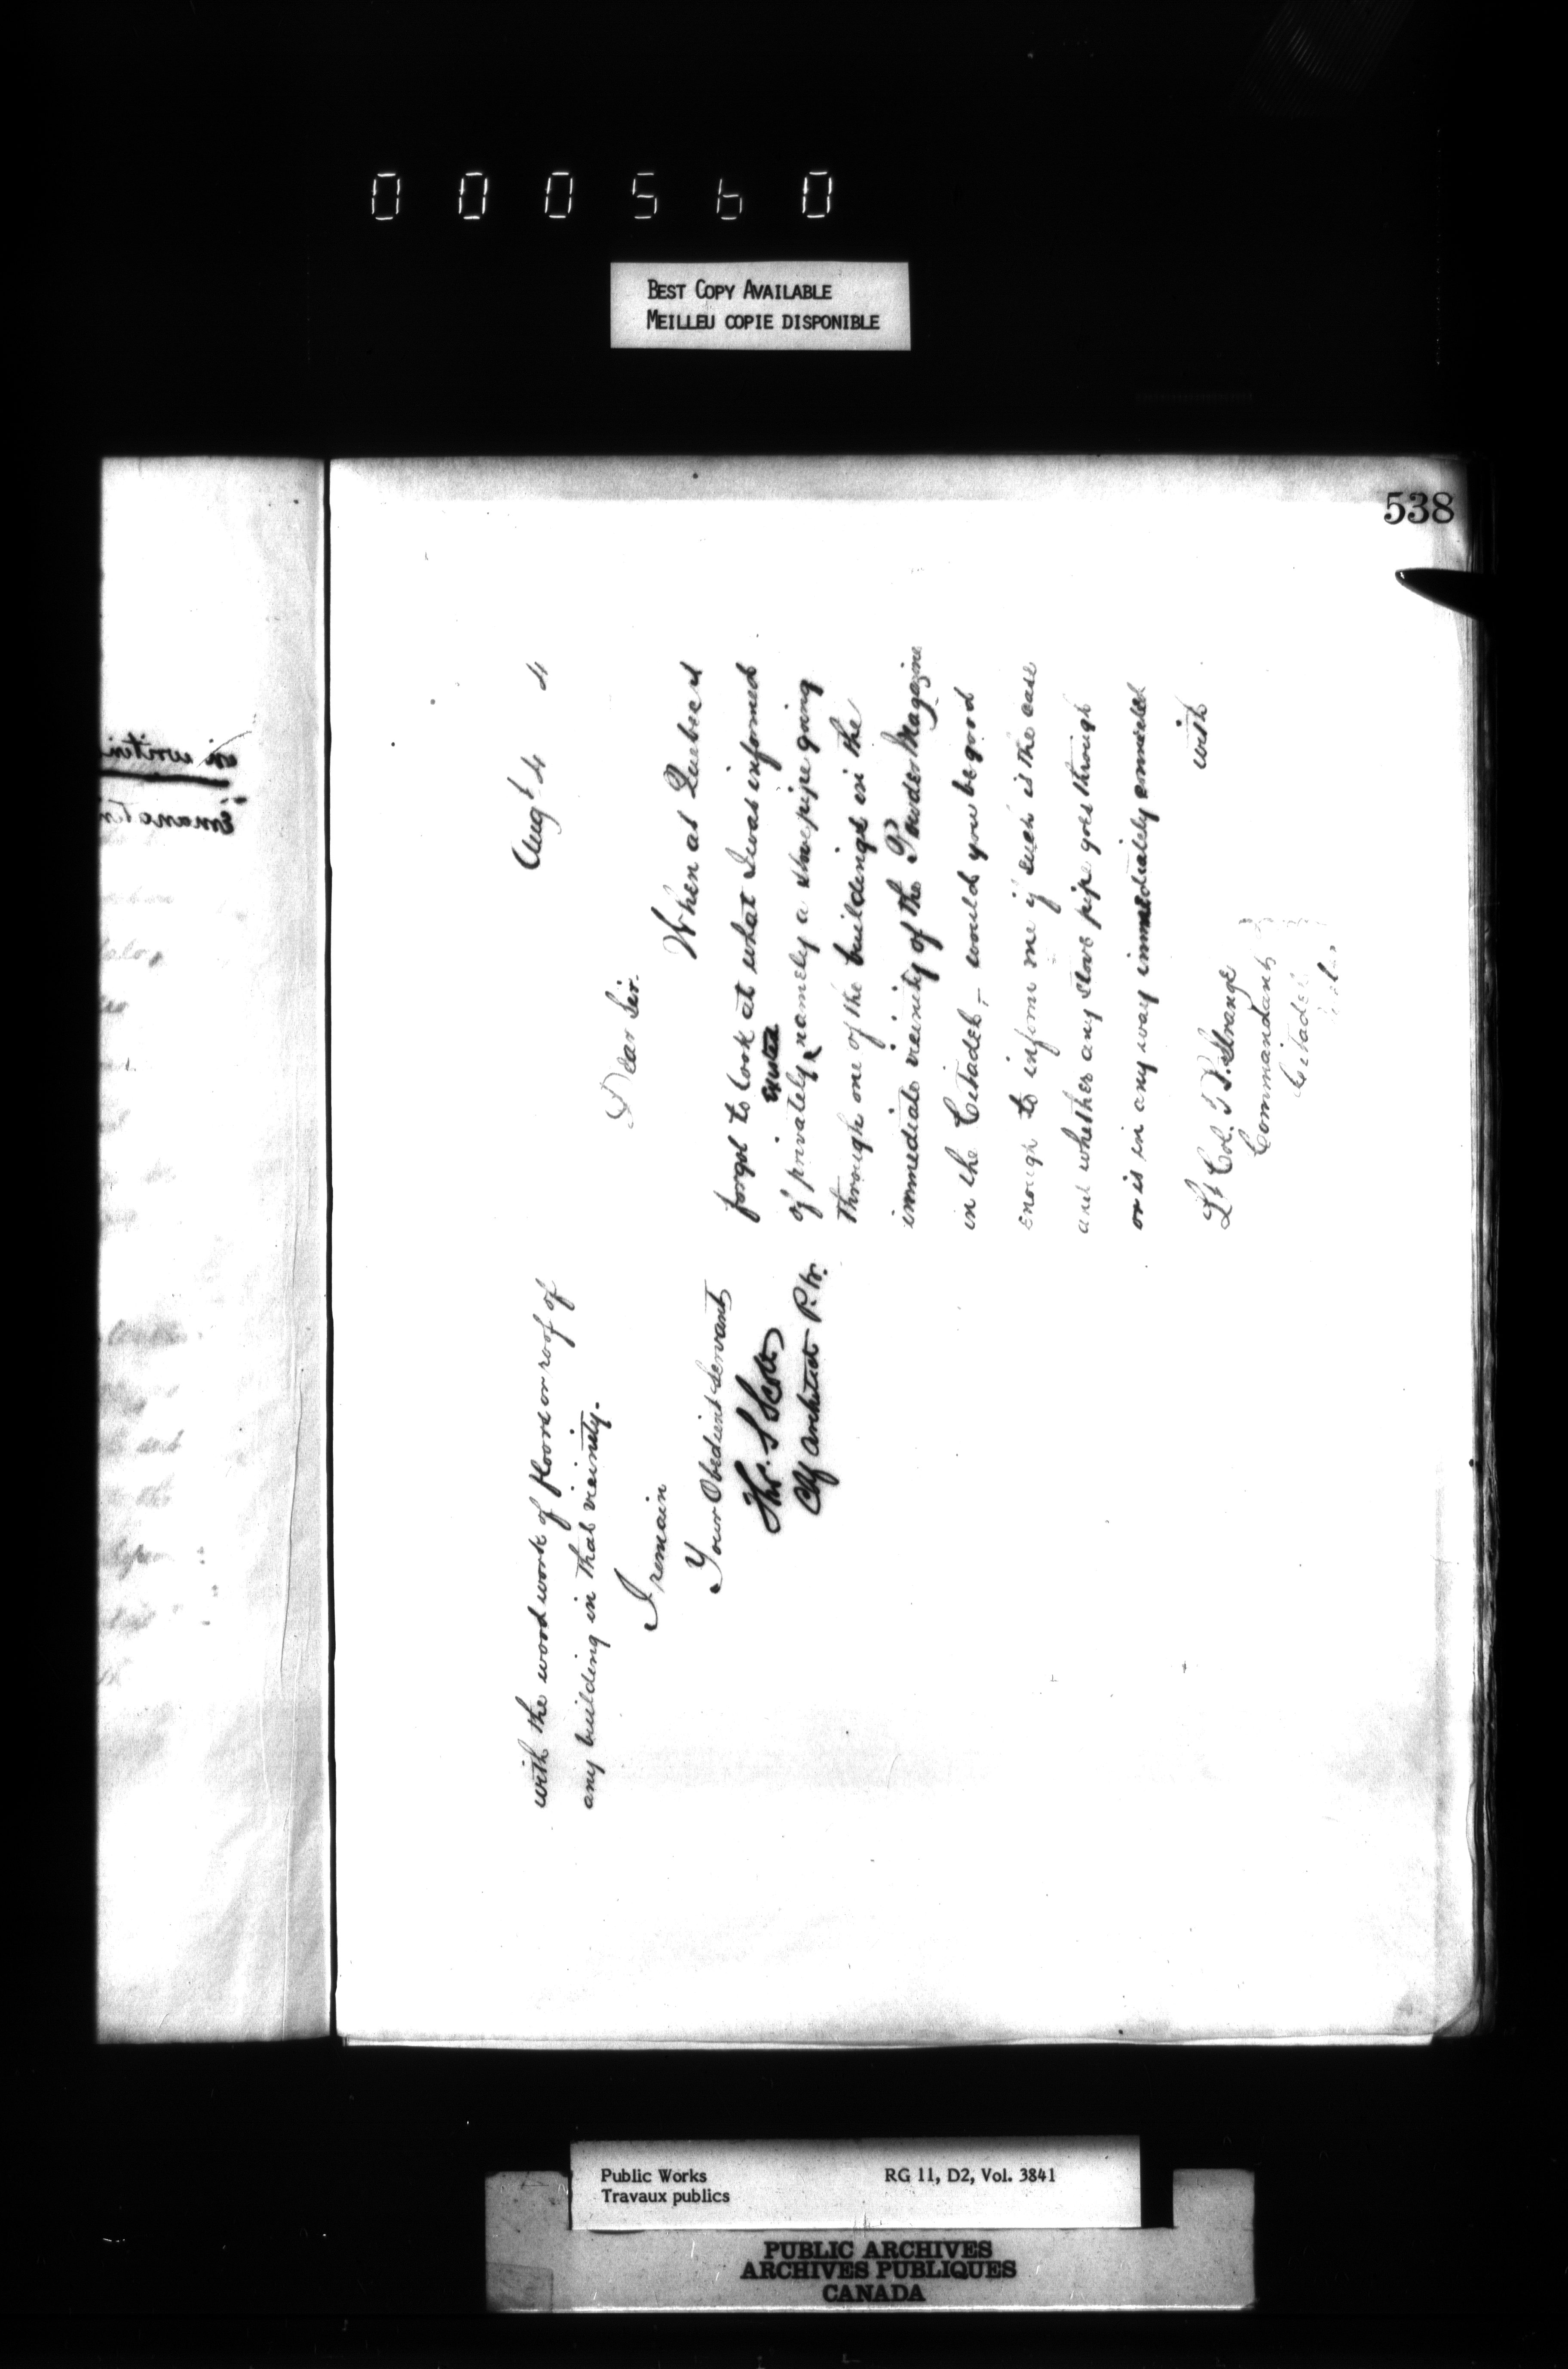 000560
BEST COPY AVAILABLE
MEILLEU COPIE DISPONIBLE
538
Augt 4 4
Dear Sir.
When at Quebec I
forgot to look at what I was informed
existed
of privately namely a stove pipe going
through one of the buildings in the
immediate vicinity of the Powder Magazine
in the Citadel, – would you be good
enough to inform me if such is the case
and whether any stove pipe goes through
or is in any way immediately connected
with
Lt Col. T. B. Strange
Commandant
Citadel
with the wood work of floors or roof of
any building in that vicinity.
I remain
Your Obedient Servant
Thos. S Scott
Chf Architect P.W.
Public Works
Travaux publics
RG 11, D2, Vol. 3841
PUBLIC ARCHIVES
ARCHIVES PUBLIQUES
CANADA